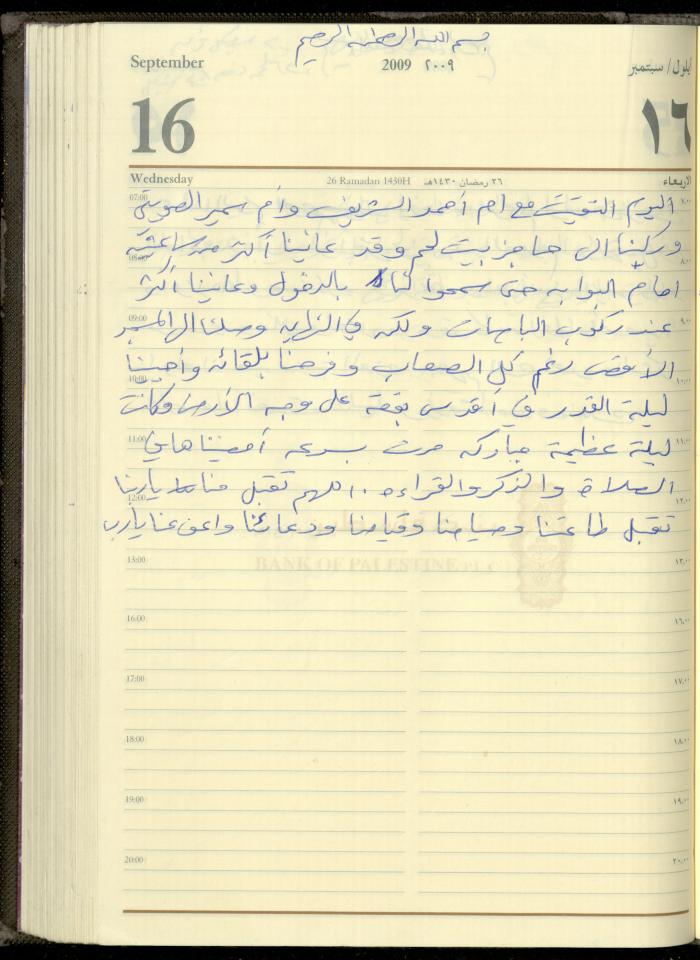 بسم الله الرحمن الرحيم
September 2009 ٢٠٠٩ أيلول/ سبتمبر
16 ١٦
Wednesday 26 Ramadan 1430H ٢٦ رمضان ١٤٣٠هـ الاربعاء
07:00 اليوم التقيت مع ام أحمد الشريف وأم سمير الصويتي ٧:٠٠
وركبنا الى حاجز بيت لحم وقد عانينا أكثر من ساعتين
08:00 ٨:٠٠
امام البوابه حتى سمحوا لنا بالدخول وعانينا أكثر
09:00 عند ركوب الباصات ولكن في النهايه وصلنا الى المسجد ٩:٠٠
الأقصى رغم كل الصعاب وفرحنا بلقائه وأحيينا
10:00 ١٠:٠٠
ليلة القدر في أقدس بقعة على وجه الأرض وكانت
11:00 ليلة عظيمة مباركه مرت بسرعه أمضيناها في ١١:٠٠
الصلاة والذكر والقراءه .. اللهم تقبل منا يا ربنا
12:00 ١٢:٠٠
تقبل طاعتنا وصيامنا وقيامنا ودعائنا واعف عنا يا رب
13:00 ١٣:٠٠
BANK OF PALESTINE PLC
16:00 ١٦:٠٠
17:00 ١٧:٠٠
18:00 ١٨:٠٠
19:00 ١٩:٠٠
20:00 ٢٠:٠٠